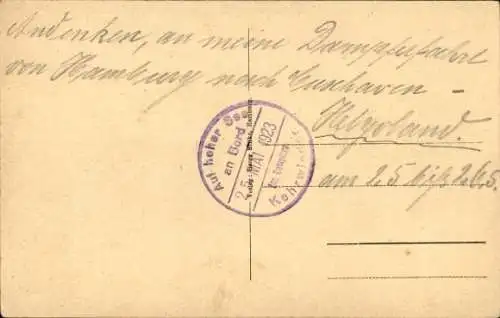 Andenken, an meine Dampferfahrt
von Hamburg nach Cuxhaven –
Helgoland.
am 25 biß 26.5.
Auf hoher See
an Bord
25. MAI 1923